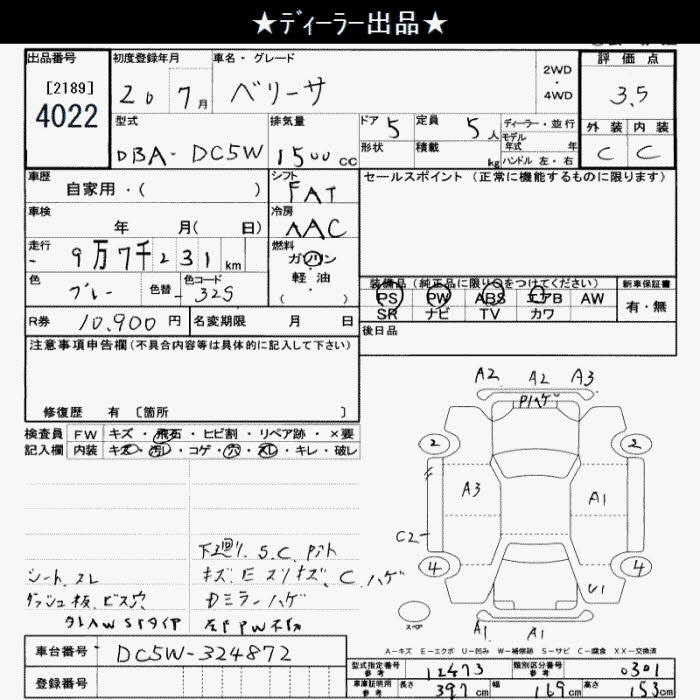 ★ディーラー出品★
出品番号 初度登録年月 車名・グレード 評価点
[2189] 4022 20 7月 ベリーサ 2WD・4WD 3.5
型式 排気量 ドア 5 定員 5人 ディーラー・並行 外装 内装
DBA-DC5W 1500cc 形状 積載 kg モデル年式 年 ハンドル 左・右 C C
車歴 自家用・( ) シフト FAT セールスポイント(正常に機能するものに限ります)
車検 年 月( 日) 冷房 AAC
走行 9万7千231km 燃料 ガソリン・軽油・( )
色 グレー 色替 - 色コード 32S 装備品(純正品に限り○をつけてください) 新車保証書
PS PW ABS エアB AW 有・無
SR ナビ TV カワ
R券 10,900円 名変期限 月 日 後日品
注意事項申告欄(不具合内容等は具体的に記入して下さい)
修復歴 有 〔箇所 〕
検査員 FW キズ・飛石・ヒビ割・リペア跡・×要
記入欄 内装 キズ・汚レ・コゲ・穴・スレ・キレ・破レ
A2 A2 A3
Pハゲ
2 2
A3 A1
C2
4 4
U1
A1 A1
スペア
下廻り S.C. Pットト
シート スレ キズ E スリキズ、C、ハゲ
ダッシュ板 ビス穴 Dミラーハゲ
A-キズ E-エクボ U-凹み W-補修跡 S-サビ C-腐食 XX-交換済
車台番号 DC5W-324872
登録番号
型式指定番号 参考 12473 類別区分番号 参考 0301
車庫証明用 参考 長さ 397cm 幅 169cm 高さ 153cm